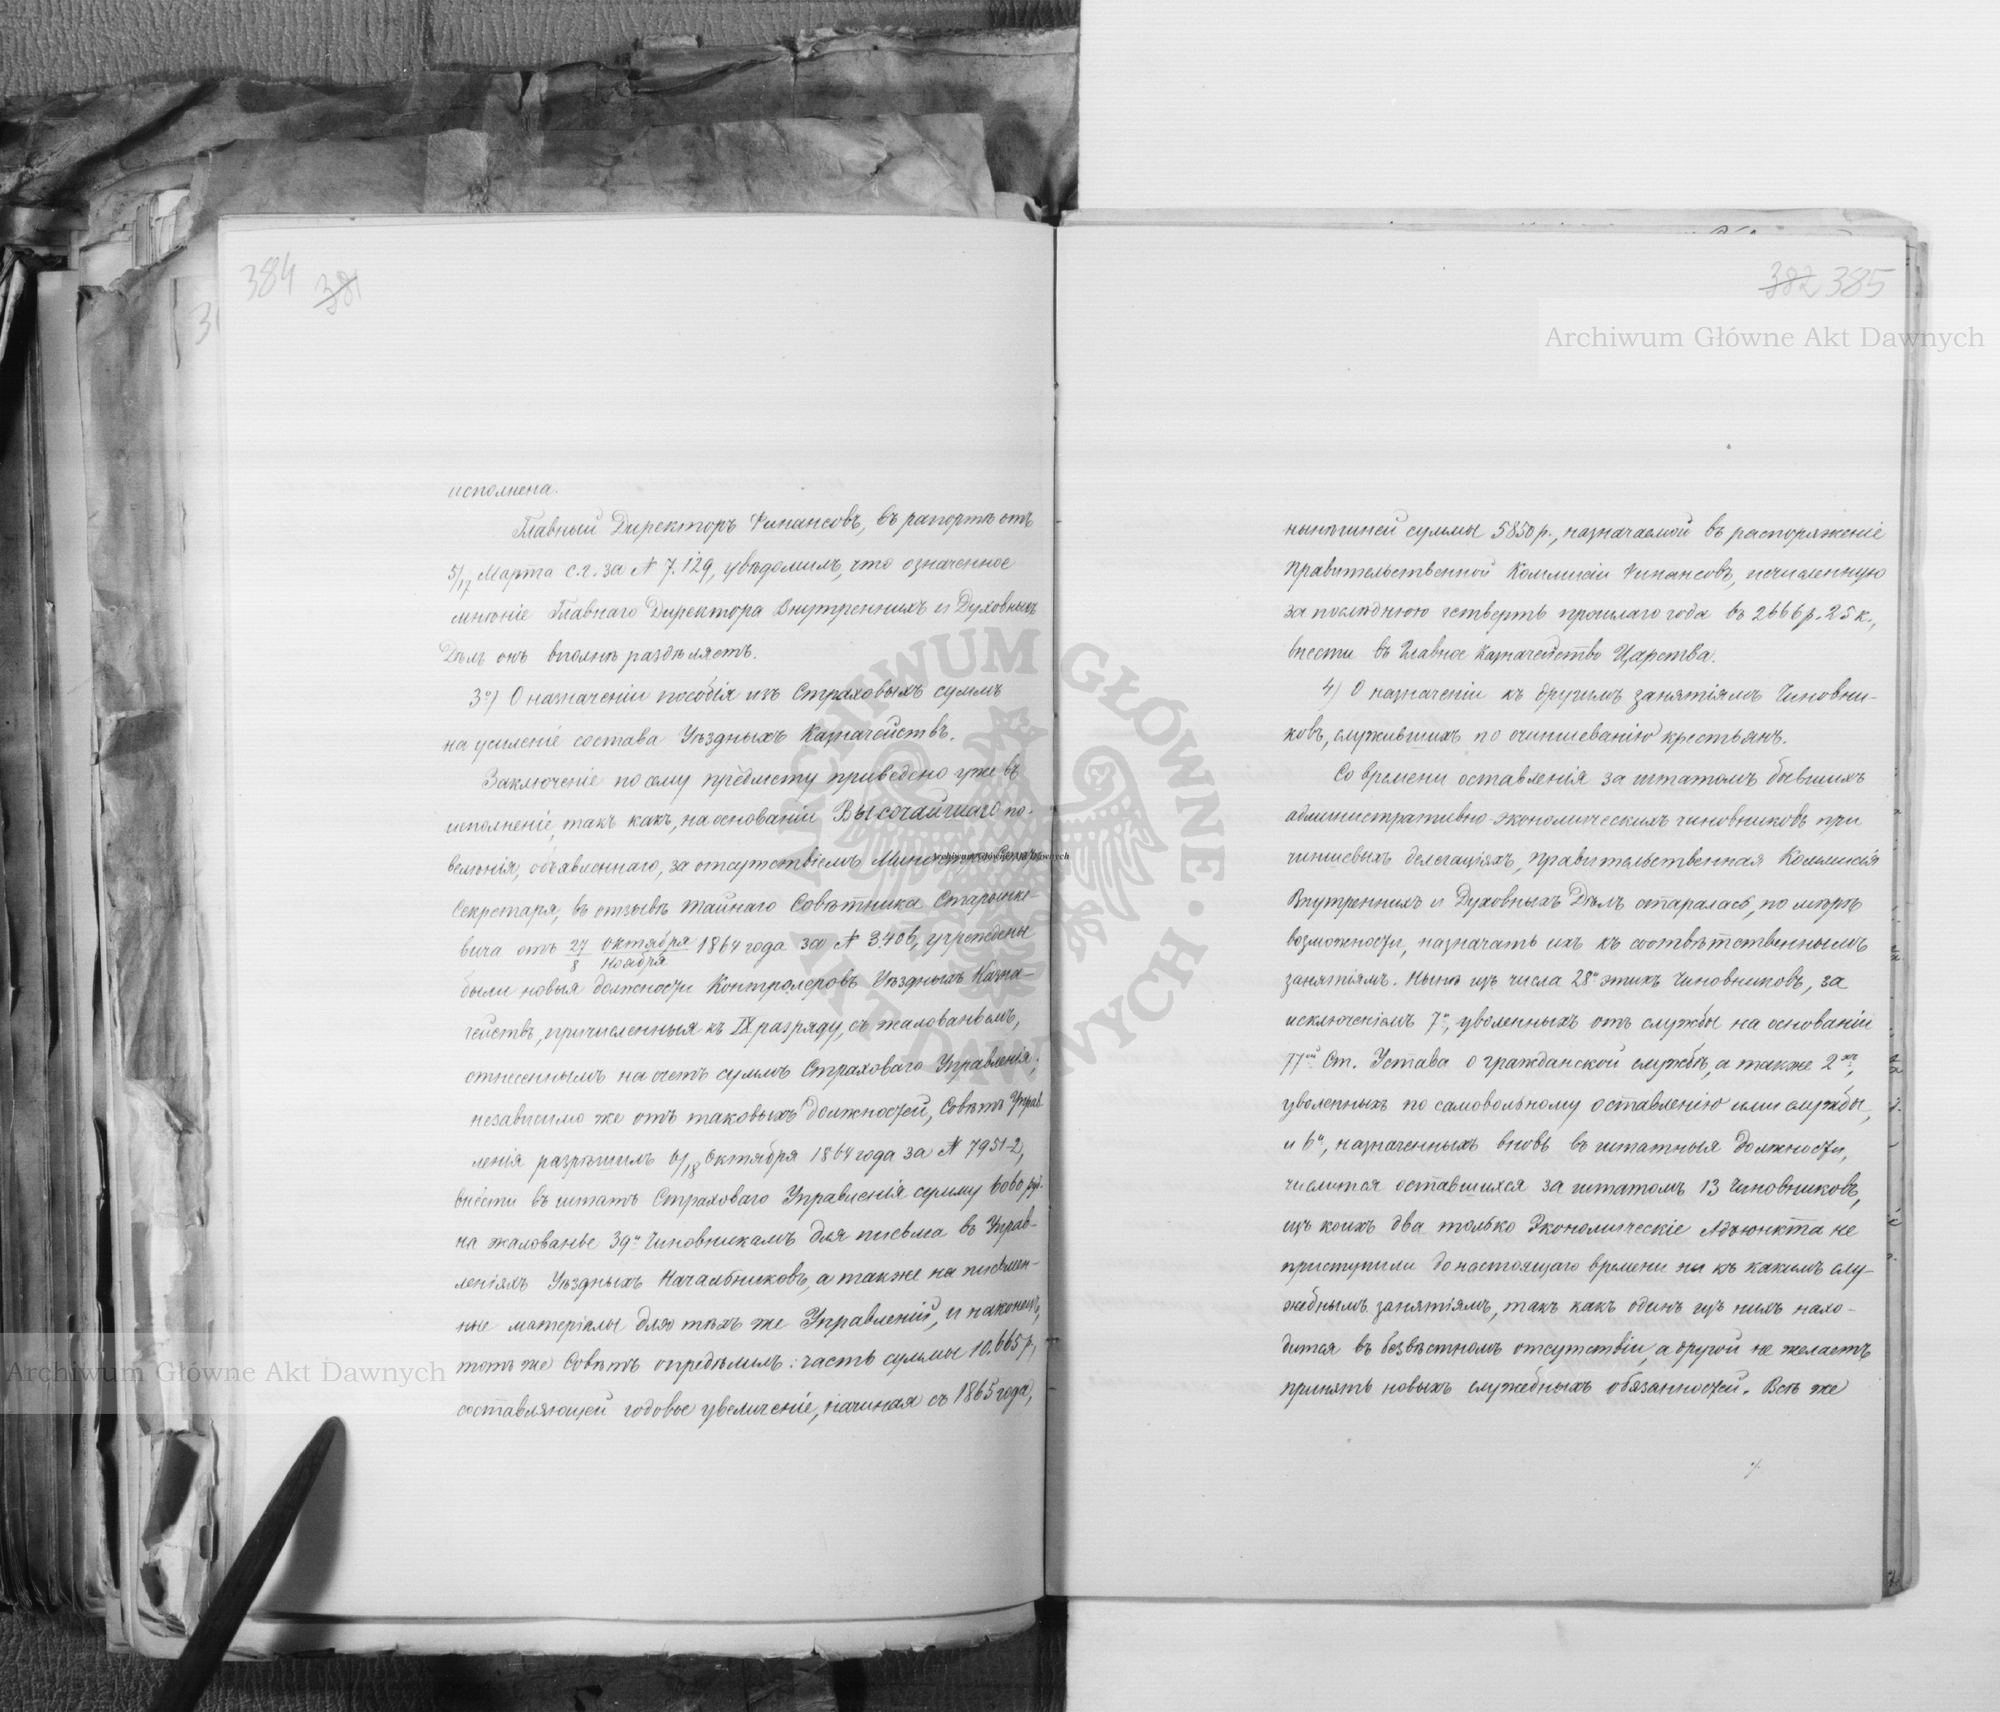 384 381
исполнена.
Главный Директоръ Финансовъ, въ рапортѣ отъ
5/17 Марта с.г. за № 7.129, увѣдомилъ, что означенное
мнѣніе Главнаго Директора Внутреннихъ и Духовныхъ
Дѣлъ онъ вполнѣ раздѣляетъ.
3º) О назначеніи пособія изъ Страховыхъ суммъ
на усиленіе состава Уѣздныхъ Казначействъ.
Заключеніе по сему предмету приведено уже въ
исполненіе, такъ какъ, на основаніи Высочайшаго по-
велѣнія, объявленнаго, за отсутствіемъ Министра Статсъ
Секретаря, въ отзывѣ тайнаго Совѣтника Старынке-
вича отъ 27 октября / 8 Ноября 1864 года за № 3.406, учреждены
были новыя должности Контролеровъ Уѣздныхъ Казна-
чействъ, причисленныя къ IX разряду, съ жалованьемъ,
отнесеннымъ на счетъ суммъ Страховаго Управленія;
независимо же отъ таковыхъ должностей, Совѣтъ Управ-
ленія разрѣшилъ 6/18 Октября 1864 года за № 7951-2,
внести въ штатъ Страховаго Управленія сумму 6060 руб.
на жалованье 39и Чиновникамъ для письма въ Управ-
леніяхъ Уѣздныхъ Начальниковъ, а также на письмен-
ные матеріалы для тѣхъ же Управленій, и наконецъ,
тотъ же Совѣтъ опредѣлилъ: часть суммы 10.665 р,
составляющей годовое увеличеніе, начиная съ 1865 года,
382 385
Archiwum Główne Akt Dawnych
нынѣшней суммы 5850 р., назначаемой въ распоряженіе
Правительственной Коммисіи Финансовъ, исчисленную
за послѣднюю четверть прошлаго года въ 2666 р. 25 к.,
внести въ Главное Казначейство Царства.
4) О назначеніи къ другимъ занятіямъ Чиновни-
ковъ, служившихъ по очиншеванію крестьянъ.
Со времени оставленія за штатомъ бывшихъ
административно-экономическихъ чиновниковъ при
чиншевыхъ делегаціяхъ, Правительственная Коммисія
Внутреннихъ и Духовныхъ Дѣлъ старалась, по мѣрѣ
возможности, назначать ихъ къ соотвѣтственнымъ
занятіямъ. Нынѣ изъ числа 28и этихъ Чиновниковъ, за
исключеніемъ 7и, уволенныхъ отъ службы на основаніи
ст. Устава о гражданской службѣ, а также 2хъ,
уволенныхъ по самовольному оставленію ими службы,
и 6и, назначенныхъ вновь въ штатныя должности,
числится оставшихся за штатомъ 13 Чиновниковъ,
изъ коихъ два только Экономическіе Адъюнкта не
приступили до настоящаго времени ни къ какимъ слу-
жебнымъ занятіямъ, такъ какъ одинъ изъ нихъ нахо-
дится въ безвѣстномъ отсутствіи, а другой не желаетъ
принять новыхъ служебныхъ обязанностей. Всѣ же
Archiwum Główne Akt Dawnych
ARCHIWUM GŁÓWNE AKT DAWNYCH
Archiwum Główne Akt Dawnych